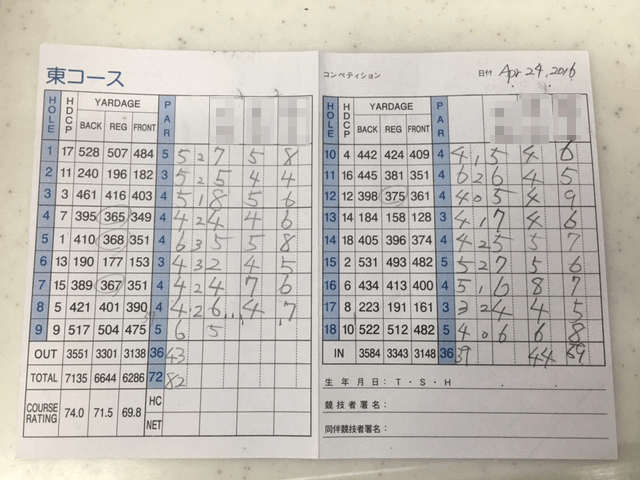 東コース
HOLE HDCP YARDAGE PAR
BACK REG FRONT
1 17 528 507 484 5 5 2 7 5 8
2 11 240 196 182 3 5 2 5 4 4
3 3 461 416 403 4 5 1 8 5 6
4 7 395 365 349 4 4 2 4 4 6
5 1 410 368 351 4 6 3 5 5 8
6 13 190 177 153 3 4 3 2 4 5
7 15 389 367 351 4 4 2 4 7 6
8 5 421 401 390 4 4 2 6 4 7
9 9 517 504 475 5 6 5
OUT 3551 3301 3138 36 43
TOTAL 7135 6644 6286 72 82
COURSE RATING 74.0 71.5 69.8 HC
NET
コンペティション 日付 Apr 24, 2016
HOLE HDCP YARDAGE PAR
BACK REG FRONT
10 4 442 424 409 4 4 1 5 4 6
11 16 445 381 351 4 6 2 6 4 5
12 12 398 375 361 4 4 0 5 4 9
13 14 184 158 128 3 4 1 7 4 6
14 18 405 396 374 4 4 2 5 5 7
15 2 531 493 482 5 5 2 7 5 6
16 6 434 413 400 4 5 1 6 8 7
17 8 223 191 161 3 3 2 4 4 5
18 10 522 512 482 5 4 0 6 6 8
IN 3584 3343 3148 36 39 44 59
生年月日：T・S・H . .
競技者署名：
同伴競技者署名：